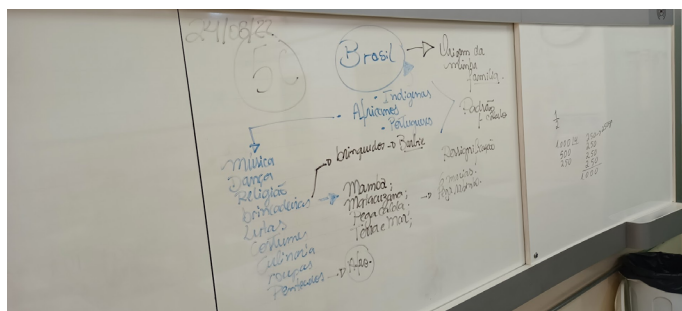 24/08/22
5C
Brasil
Origem da
minha
família.
Indígenas
Africanos
Portugueses
Padrão
Música
Dança
Religião
brincadeiras
Lutas
Costumes
Culinária
roupas
Penteados
brinquedos
Barbie
Mamba;
Matacuzana;
Pega cauda;
Terra e Mar;
Ressignificação
Afro.
1000
500
250
250
250
250
1000